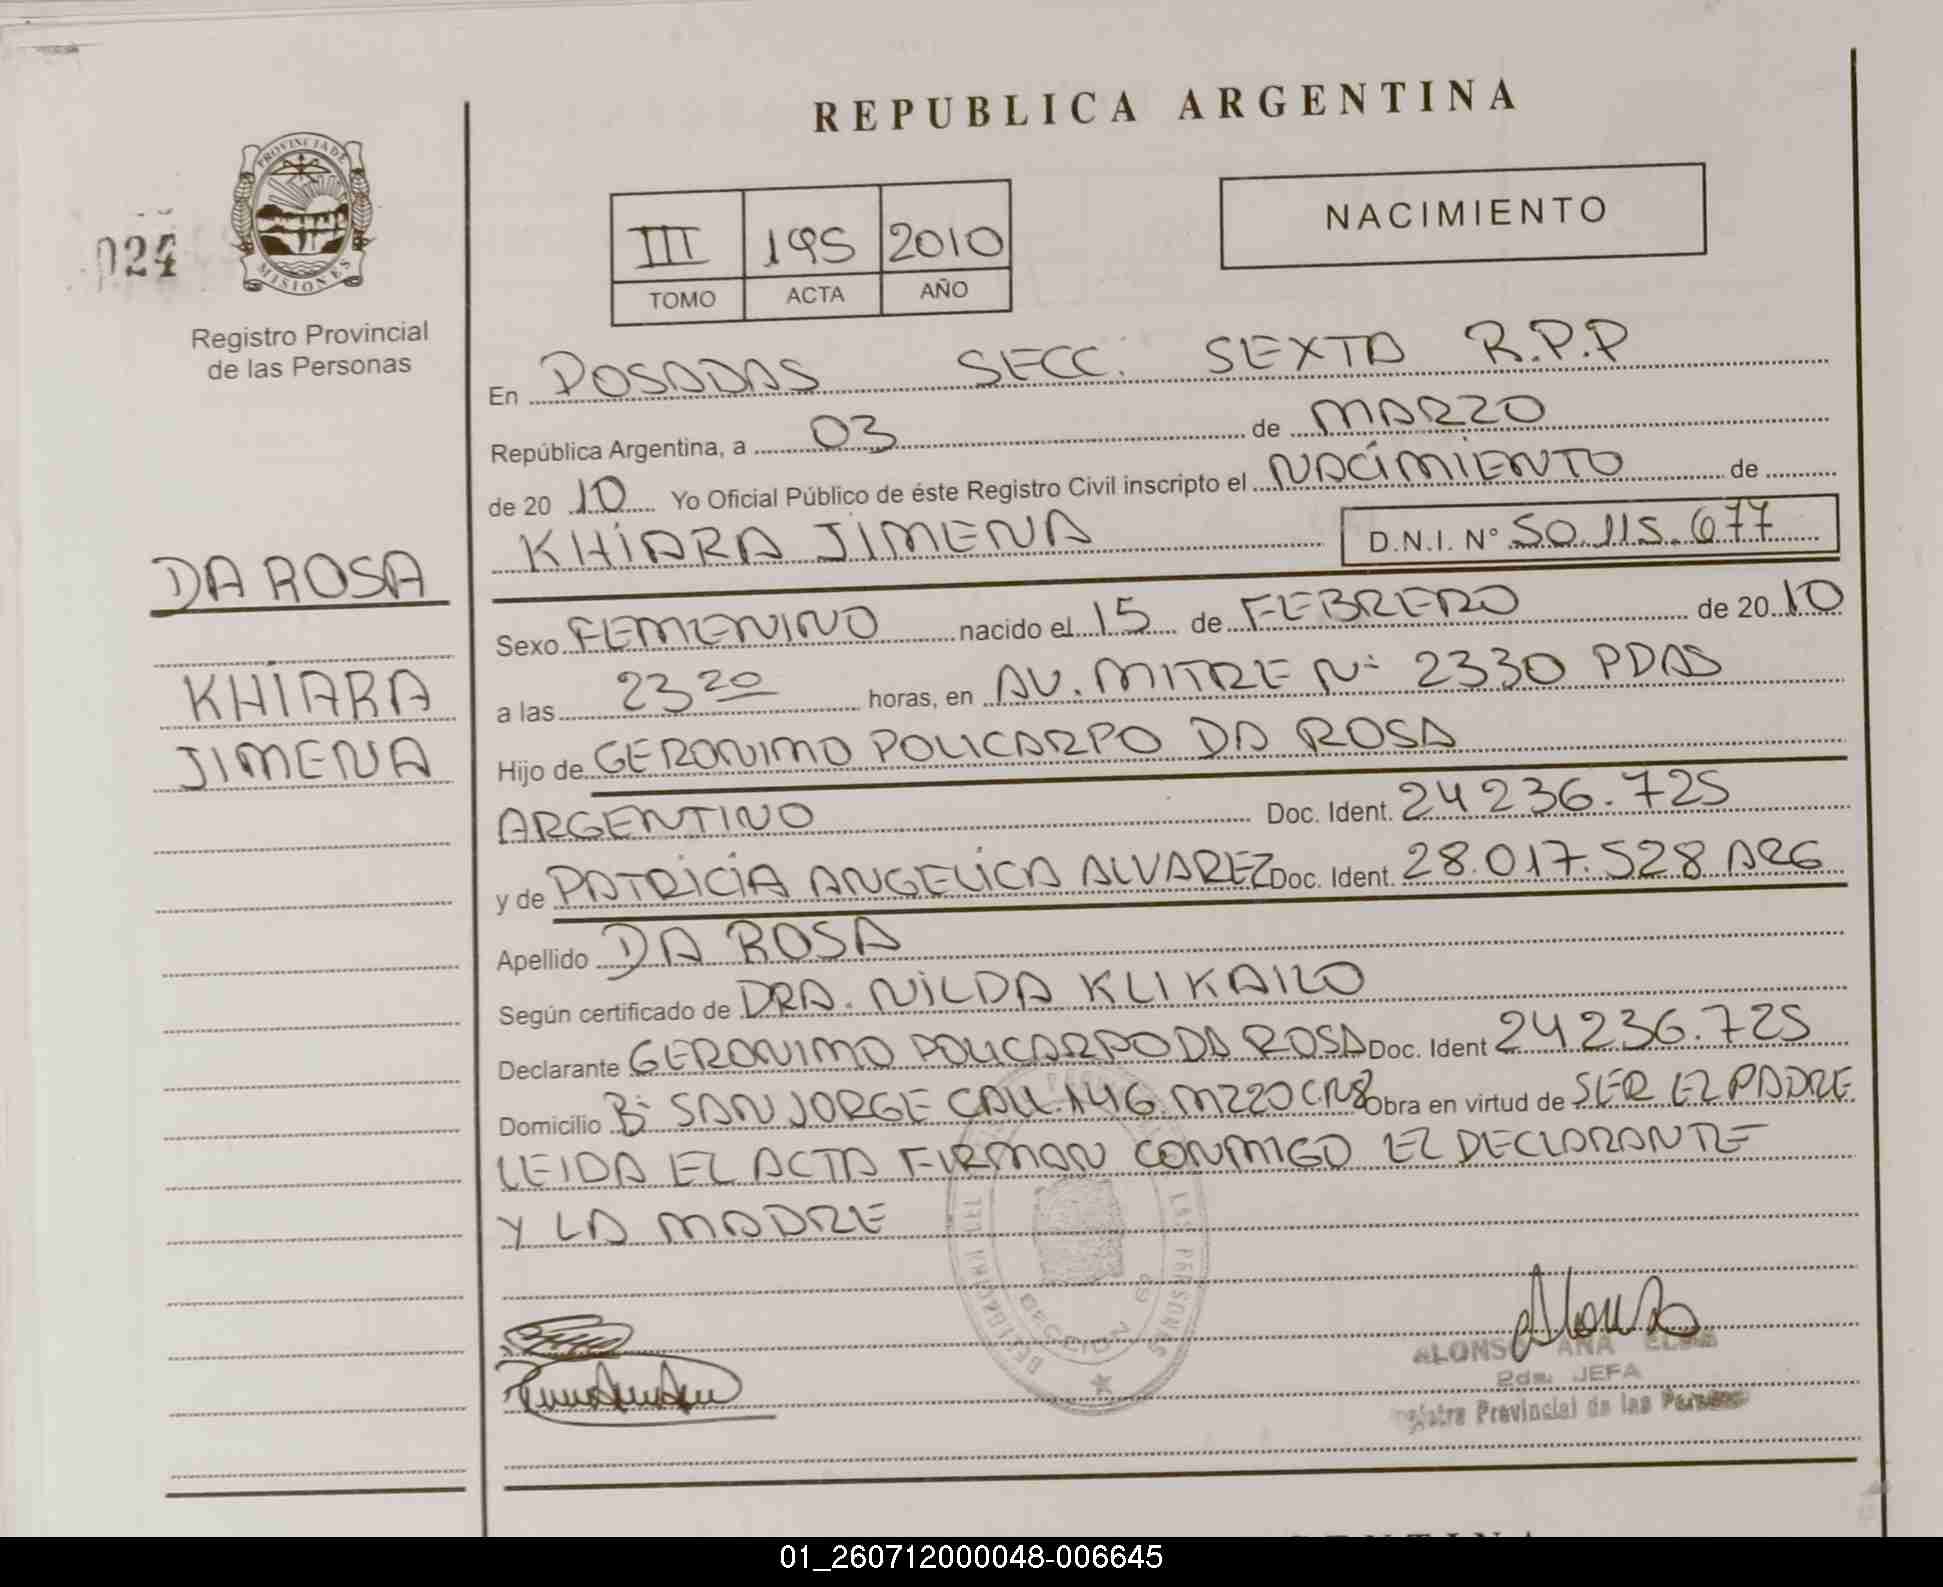 REPUBLICA ARGENTINA
PROVINCIA DE
MISIONES
024
Registro Provincial
de las Personas
III 195 2010
TOMO ACTA AÑO
NACIMIENTO
En POSADAS SECC. SEXTA R.P.P
República Argentina, a 03 de MARZO
de 2010 Yo Oficial Público de éste Registro Civil inscripto el NACIMIENTO de
KHIARA JIMENA D.N.I. N° 50.115.677
DA ROSA
KHIARA
JIMENA
Sexo FEMENINO nacido el 15 de FEBRERO de 2010
a las 23 20 horas, en AV. MITRE Nº 2330 PDAS
Hijo de GERONIMO POLICARPO DA ROSA
ARGENTINO Doc. Ident. 24236.725
y de PATRICIA ANGELICA ALVAREZ Doc. Ident. 28.017.528 ARG
Apellido DA ROSA
Según certificado de DRA. NILDA KLIKAILO
Declarante GERONIMO POLICARPO DA ROSA Doc. Ident 24236.725
Domicilio Bº SAN JORGE CALL.146 MZ20 Obra en virtud de SER EL PADRE
LEIDA EL ACTA FIRMAN CONMIGO EL DECLARANTE
Y LA MADRE
LAS PERSONAS
ALONSO ANA ELSA
2da. JEFA
Registro Provincial de las Personas
01_260712000048-006645